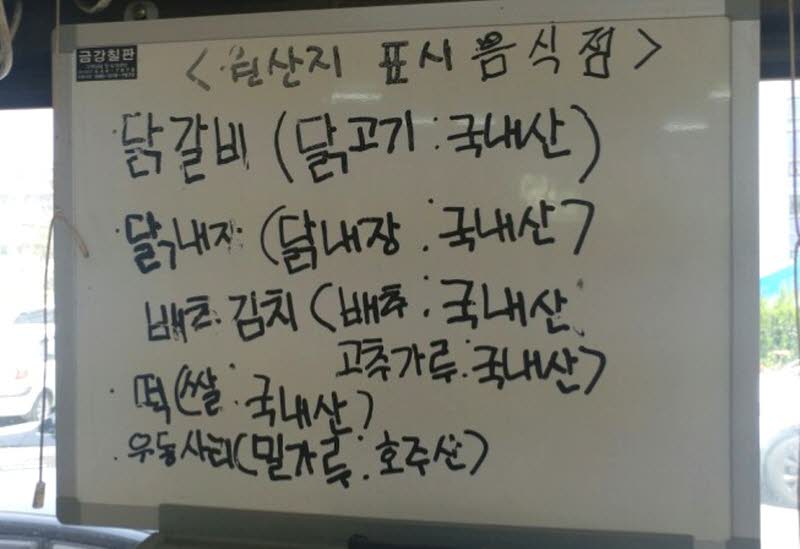 금강칠판
<원산지 표시 음식점>
닭갈비 (닭고기 : 국내산)
닭내장 (닭내장 : 국내산)
배추김치 (배추 : 국내산
고추가루 : 국내산)
떡 (쌀 : 국내산)
우동사리 (밀가루 : 호주산)